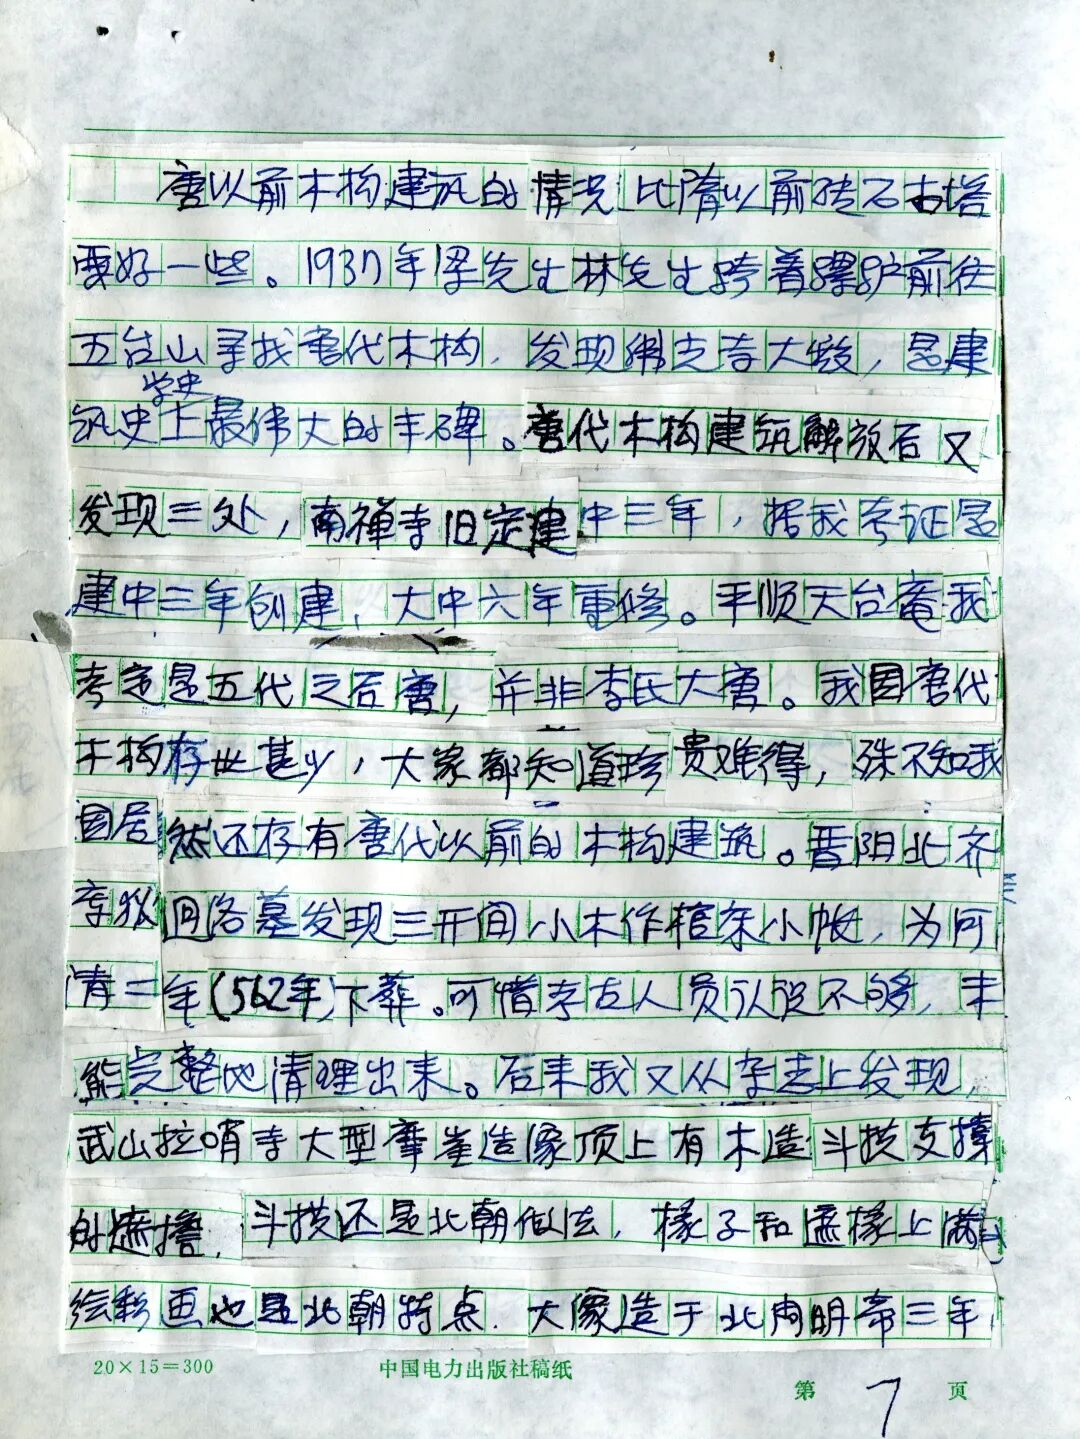 唐以前木构建筑的情况比隋以前砖石古塔
要好一些。1937年梁先生林先生跨着骡驴前往
五台山寻找唐代木构,发现佛光寺大殿,是建
学史
筑史上最伟大的丰碑。唐代木构建筑解放后又
发现三处,南禅寺旧定建中三年,据我考证是
建中三年创建、大中六年重修。平顺天台庵我
考定是五代之后唐,并非李氏大唐。我国唐代
木构存世甚少,大家都知道珍贵难得,殊不知我
国居然还存有唐代以前的木构建筑。晋阳北齐
库狄迴洛墓发现三开间小木作棺椁小帐,为河
清二年(562年)下葬。可惜考古人员认识不够,未
能完整地清理出来。后来我又从杂志上发现,
武山拉哨寺大型摩崖造像顶上有木造斗拱支撑
的遮檐,斗拱还是北朝做法,椽子和遮椽上满
绘彩画也是北朝特点.大像造于北周明帝三年,
20×15=300
中国电力出版社稿纸
第 7 页